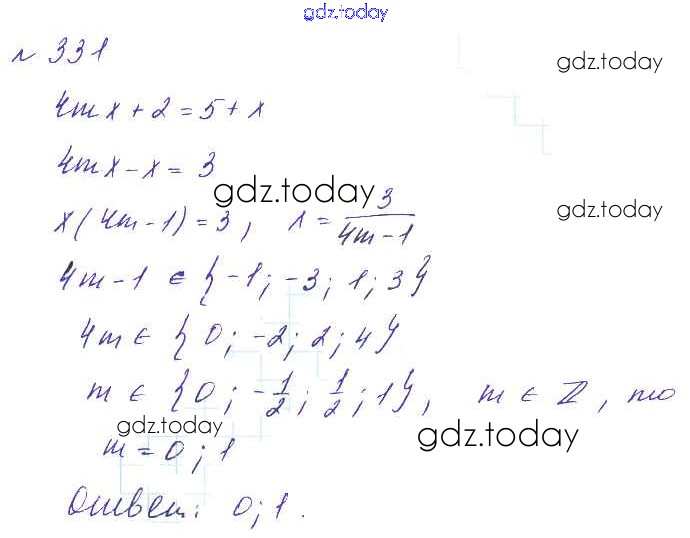 gdz.today
№ 331
gdz.today
4mx + 2 = 5 + x
4mx - x = 3
gdz.today
x(4m - 1) = 3, x = 3/(4m - 1)
gdz.today
4m - 1 ∈ {-1; -3; 1; 3}
4m ∈ {0; -2; 2; 4}
m ∈ {0; -1/2; 1/2; 1}, m ∈ ℤ, то
gdz.today
gdz.today
m = 0; 1
Ответ: 0; 1.